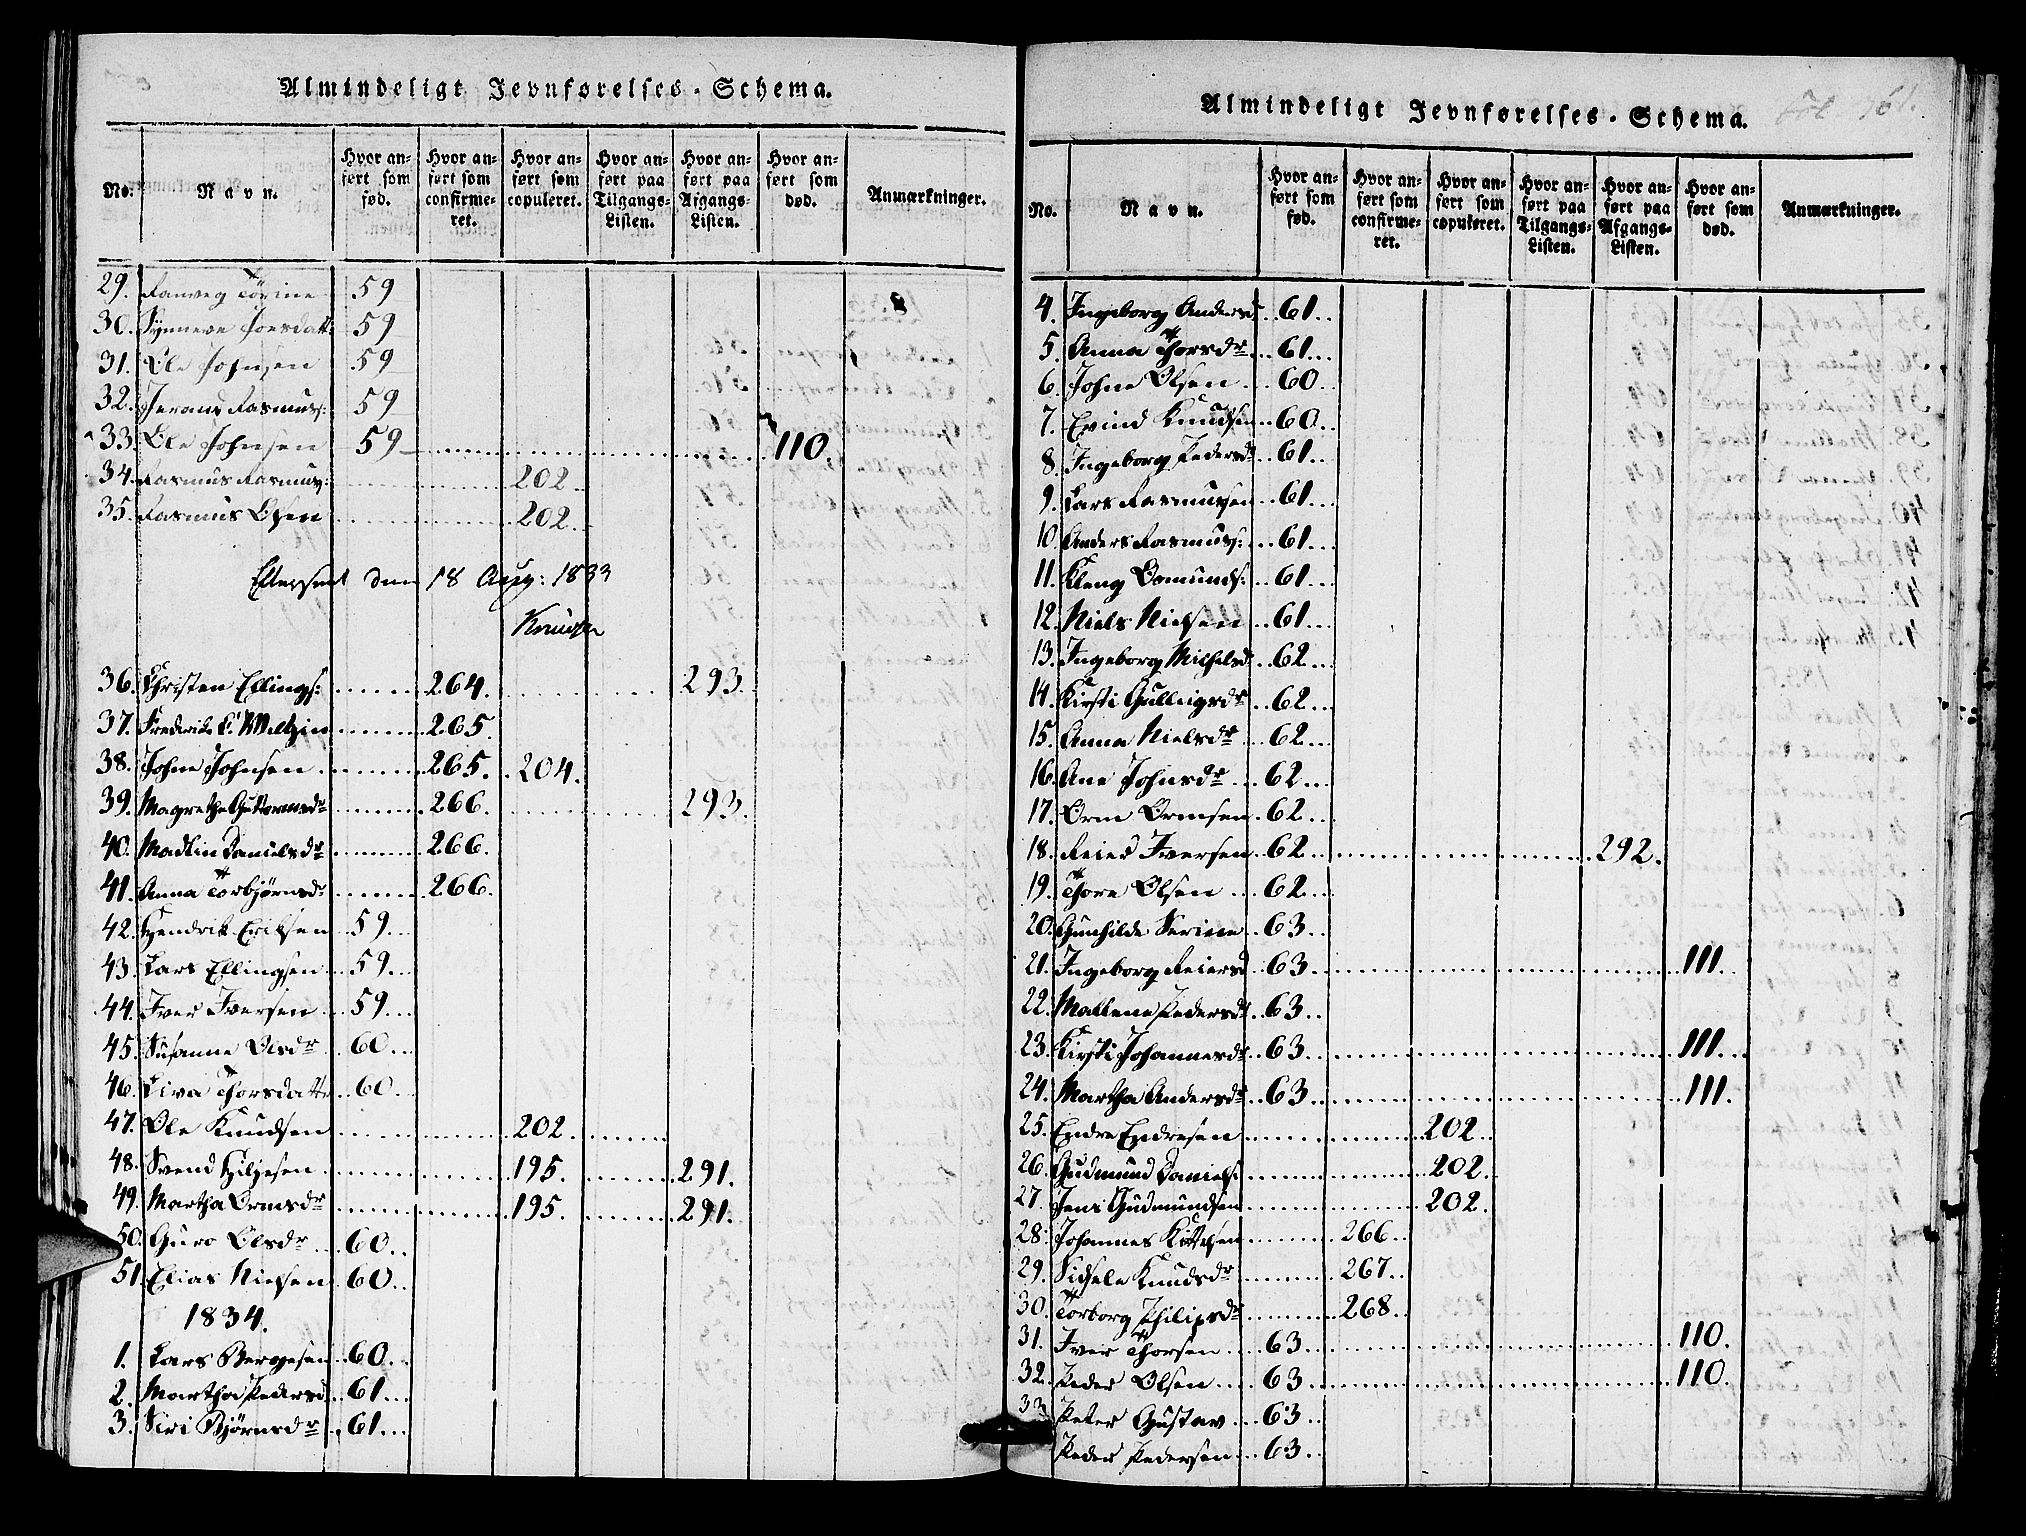 Almindeligt Jevnførelses-Schema.
No. Navn. Hvor anført som fød. Hvor anført som confirmeret. Hvor anført som copuleret. Hvor anført paa Tilgangs-Listen. Hvor anført paa Afgangs-Listen. Hvor anført som død. Anmærkninger.
29. 59
30. 59
31. Ole Johnsen 59
32. Rasmuss: 59
33. Ole Johnsen 59 110.
34. Rasmus Rasmuss: 202
35. Rasmus Olsen 202.
Efterseet den 18 Aug: 1833
36. Christen Ellings: 264. 293.
37. Frederik 265.
38. Johne Johnsen 265. 204.
39. Magrethe Guttormsdr 266. 293.
40. Madlin Danielsdr 266.
41. Anna Torbjørnsdr 266.
42. Hendrik Eriksen 59.
43. Lars Ellingsen 59.
44. Iver Iversen 59.
45. Susanne Olsdr 60.
46. Liva Thorsdatt 60.
47. Ole Knudsen 202.
48. Svend 195. 291.
49. Martha Ormsdr 195. 291.
50. Guro Olsdr 60.
51. Elias Nielsen 60.
1834.
1. Lars Bergesen 60.
2. Martha Pedersd 61.
3. Siri Bjørnsdr 61.
Almindeligt Jevnførelses-Schema.
161.
No. Navn. Hvor anført som fød. Hvor anført som confirmeret. Hvor anført som copuleret. Hvor anført paa Tilgangs-Listen. Hvor anført paa Afgangs-Listen. Hvor anført som død. Anmærkninger.
4. Ingeborg Andersd 61.
5. Anna Thorsdr 61.
6. Johne Olsen 60.
7. Evind Knudsen 60.
8. Ingeborg Pedersdr 61.
9. Lars Rasmussen 61.
10. Anders Rasmuss: 61.
11. Kleng Osmunds: 61.
12. Niels Nielsen 61.
13. Ingeborg 62.
14. Kirsti 62.
15. Anna Nielsdr 62.
16. Ane Johnsdr 62.
17. Orm Ormsen 62.
18. Reier Iversen 62. 292.
19. Thore Olsen 62.
20. Gunhilde Serine 63.
21. Ingeborg Reiersd 63. 111.
22. Mallene Pedersdr 63.
23. Kirsti Johannesdr 63. 111.
24. Martha Andersdr 63. 111.
25. Endre Endresen 202.
26. Gudmund Daniels: 202.
27. Jens Gudmundsen 202.
28. Johannes Kittelsen 266.
29. Sidsele Knudsdr 267.
30. Torborg Philipsdr 268.
31. Iver Thorsen 63. 110.
32. Peder Olsen 63. 110.
33 Peter Gustav 63.
Peder Pedersen 63.